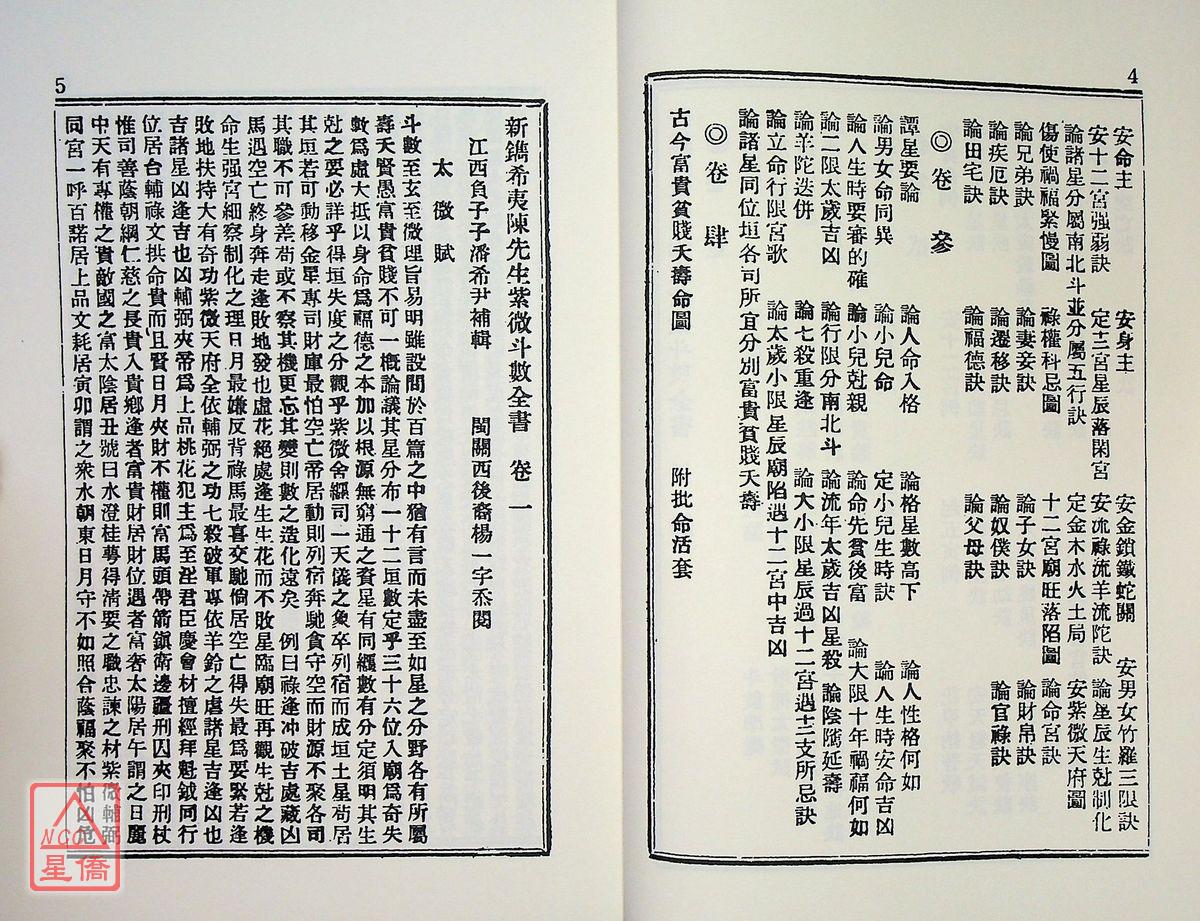 4
安命主　安身主　安金鎖鐵蛇關　安男女竹羅三限訣
安十二宮強弱訣　定十二宮星辰落閑宮　安流祿流羊流陀訣　論星辰生尅制化
論諸星分屬南北斗並分屬五行訣　定金木水火土局　安紫微天府圖
傷使禍福緊慢圖　祿權科忌圖　十二宮廟旺落陷圖　論命宮訣
論兄弟訣　論妻妾訣　論子女訣　論財帛訣
論疾厄訣　論遷移訣　論奴僕訣　論官祿訣
論田宅訣　論福德訣　論父母訣
◎卷　參
譚星要論　論人命入格　論格星數高下　論人性格何如
論男女命同異　論小兒命　定小兒生時訣　論人生時安命吉凶
論人生時要審的確　論小兒尅親　論命先貧後富　論大限十年禍福何如
論二限太歲吉凶　論行限分南北斗　論流年太歲吉凶星殺　論陰騭延壽
論羊陀迭併　論七殺重逢　論大小限星辰過十二宮遇十二支所忌訣
論立命行限宮歌　論太歲小限星辰廟陷遇十二宮中吉凶
論諸星同位垣各司所宜分別富貴貧賤夭壽
◎卷　肆
古今富貴貧賤夭壽命圖　附批命活套
5
新鐫希夷陳先生紫微斗數全書　卷一
江西負子子潘希尹補輯　閩關西後裔楊一宇叅閱
太　微　賦
斗數至玄至微理旨易明雖設問於百篇之中猶有言而未盡至如星之分野各有所屬
壽夭賢愚富貴貧賤不可一概論議其星分布一十二垣數定乎三十六位入廟為奇失
數為虛大抵以身命為福德之本加以根源無窮通之資星有同纏數有分定須明其生
尅之要必詳乎得垣失度之分觀乎紫微舍纏司一天儀之象卒列宿而成垣土星苟居
其垣若可動移金星專司財庫最怕空亡帝居動則列宿奔馳貪守空而財源不聚各司
其職不可參差苟或不察其機更忘其變則數之造化遠矣　例曰祿逢冲破吉處藏凶
馬遇空亡終身奔走逢敗地發也虛花絕處逢生生花而不敗星臨廟旺再觀生尅之機
命生强宮細察制化之理日月最嫌反背祿馬最喜交馳倘居空亡得失最為要緊若逢
敗地扶持大有奇功紫微天府全依輔弼之功七殺破軍專依羊鈴之虐諸星吉逢凶也
吉諸星凶逢吉也凶輔弼夾帝為上品桃花犯主為至淫君臣慶會材擅經邦魁鉞同行
位居台輔祿文拱命貴而且賢日月夾財不權則富馬頭帶箭鎮衛邊疆刑囚夾印刑杖
惟司善蔭朝綱仁慈之長貴入貴鄉逢者富貴財居財位遇者富奢太陽居午謂之日麗
中天有專權之貴敵國之富太陰居丑號曰水澄桂萼得清要之職忠諫之材紫微輔弼
同宮一呼百諾居上品文耗居寅卯謂之衆水朝東日月守不如照合蔭福聚不怕凶危
NCC
星僑